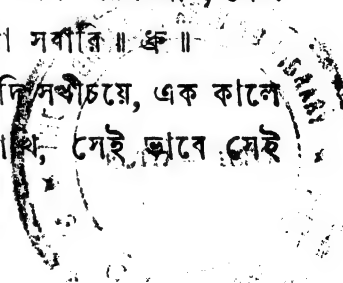 সবারি ॥ ধ্রু ॥
সখীচয়ে, এক কালে
সেই ভাবে সেই